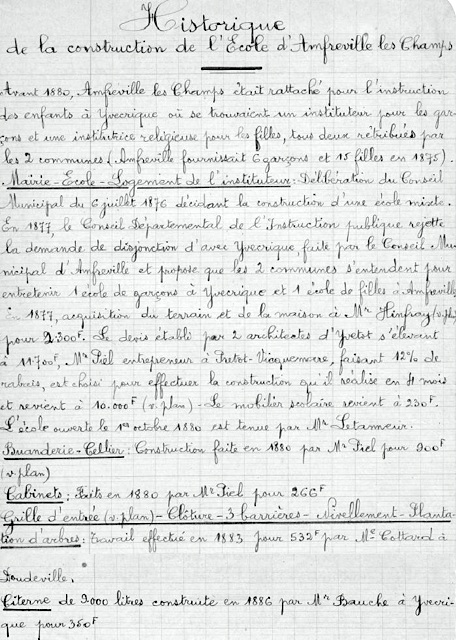 Historique
de la construction de l'École d'Amfreville les Champs
Avant 1880, Amfreville les Champs était rattaché pour l'instruction
des enfants à Yvecrique où se trouvaient un instituteur pour les gar-
çons et une institutrice religieuse pour les filles, tous deux rétribués par
les 2 communes (Amfreville fournissait 6 garçons et 15 filles en 1875).
Mairie-Ecole-Logement de l'instituteur: Délibération du Conseil
Municipal du 6 juillet 1876 décidant la construction d'une école mixte.
En 1877, le Conseil Départemental de l'Instruction publique rejette
la demande de disjonction d'avec Yvecrique, faite par le Conseil Mu-
nicipal d'Amfreville et propose que les 2 communes s'entendent pour
entretenir 1 école de garçons à Yvecrique et 1 école de filles à Amfreville
En 1877, acquisition du terrain et de la maison à Mr Hinfray (v. plan)
pour 2.300F. Le devis établi par 2 architectes d'Yvetot s'élevant
à 11700F, Mr Piel entrepreneur à Pretot-Vicquemare, faisant 12% de
rabais, est choisi pour effectuer la construction qu'il réalise en 4 mois
et revient à 10.000F (v. plan) - Le mobilier scolaire revient à 230F.
L'école ouverte le 1er octobre 1880 est tenue par Mr Letanneur.
Buanderie-Cellier: Construction faite en 1880 par Mr Piel pour 900F
(v. plan)
Cabinets: Faits en 1880 par Mr Piel pour 266F
Grille d'entrée (v. plan) - Clôture - 3 barrières - Nivellement - Planta-
tion d'arbres: Travail effectué en 1883 pour 532F par Mr Cottard à
Doudeville.
Citerne de 9000 litres construite en 1886 par Mr Bauche à Yvecri-
que pour 350F